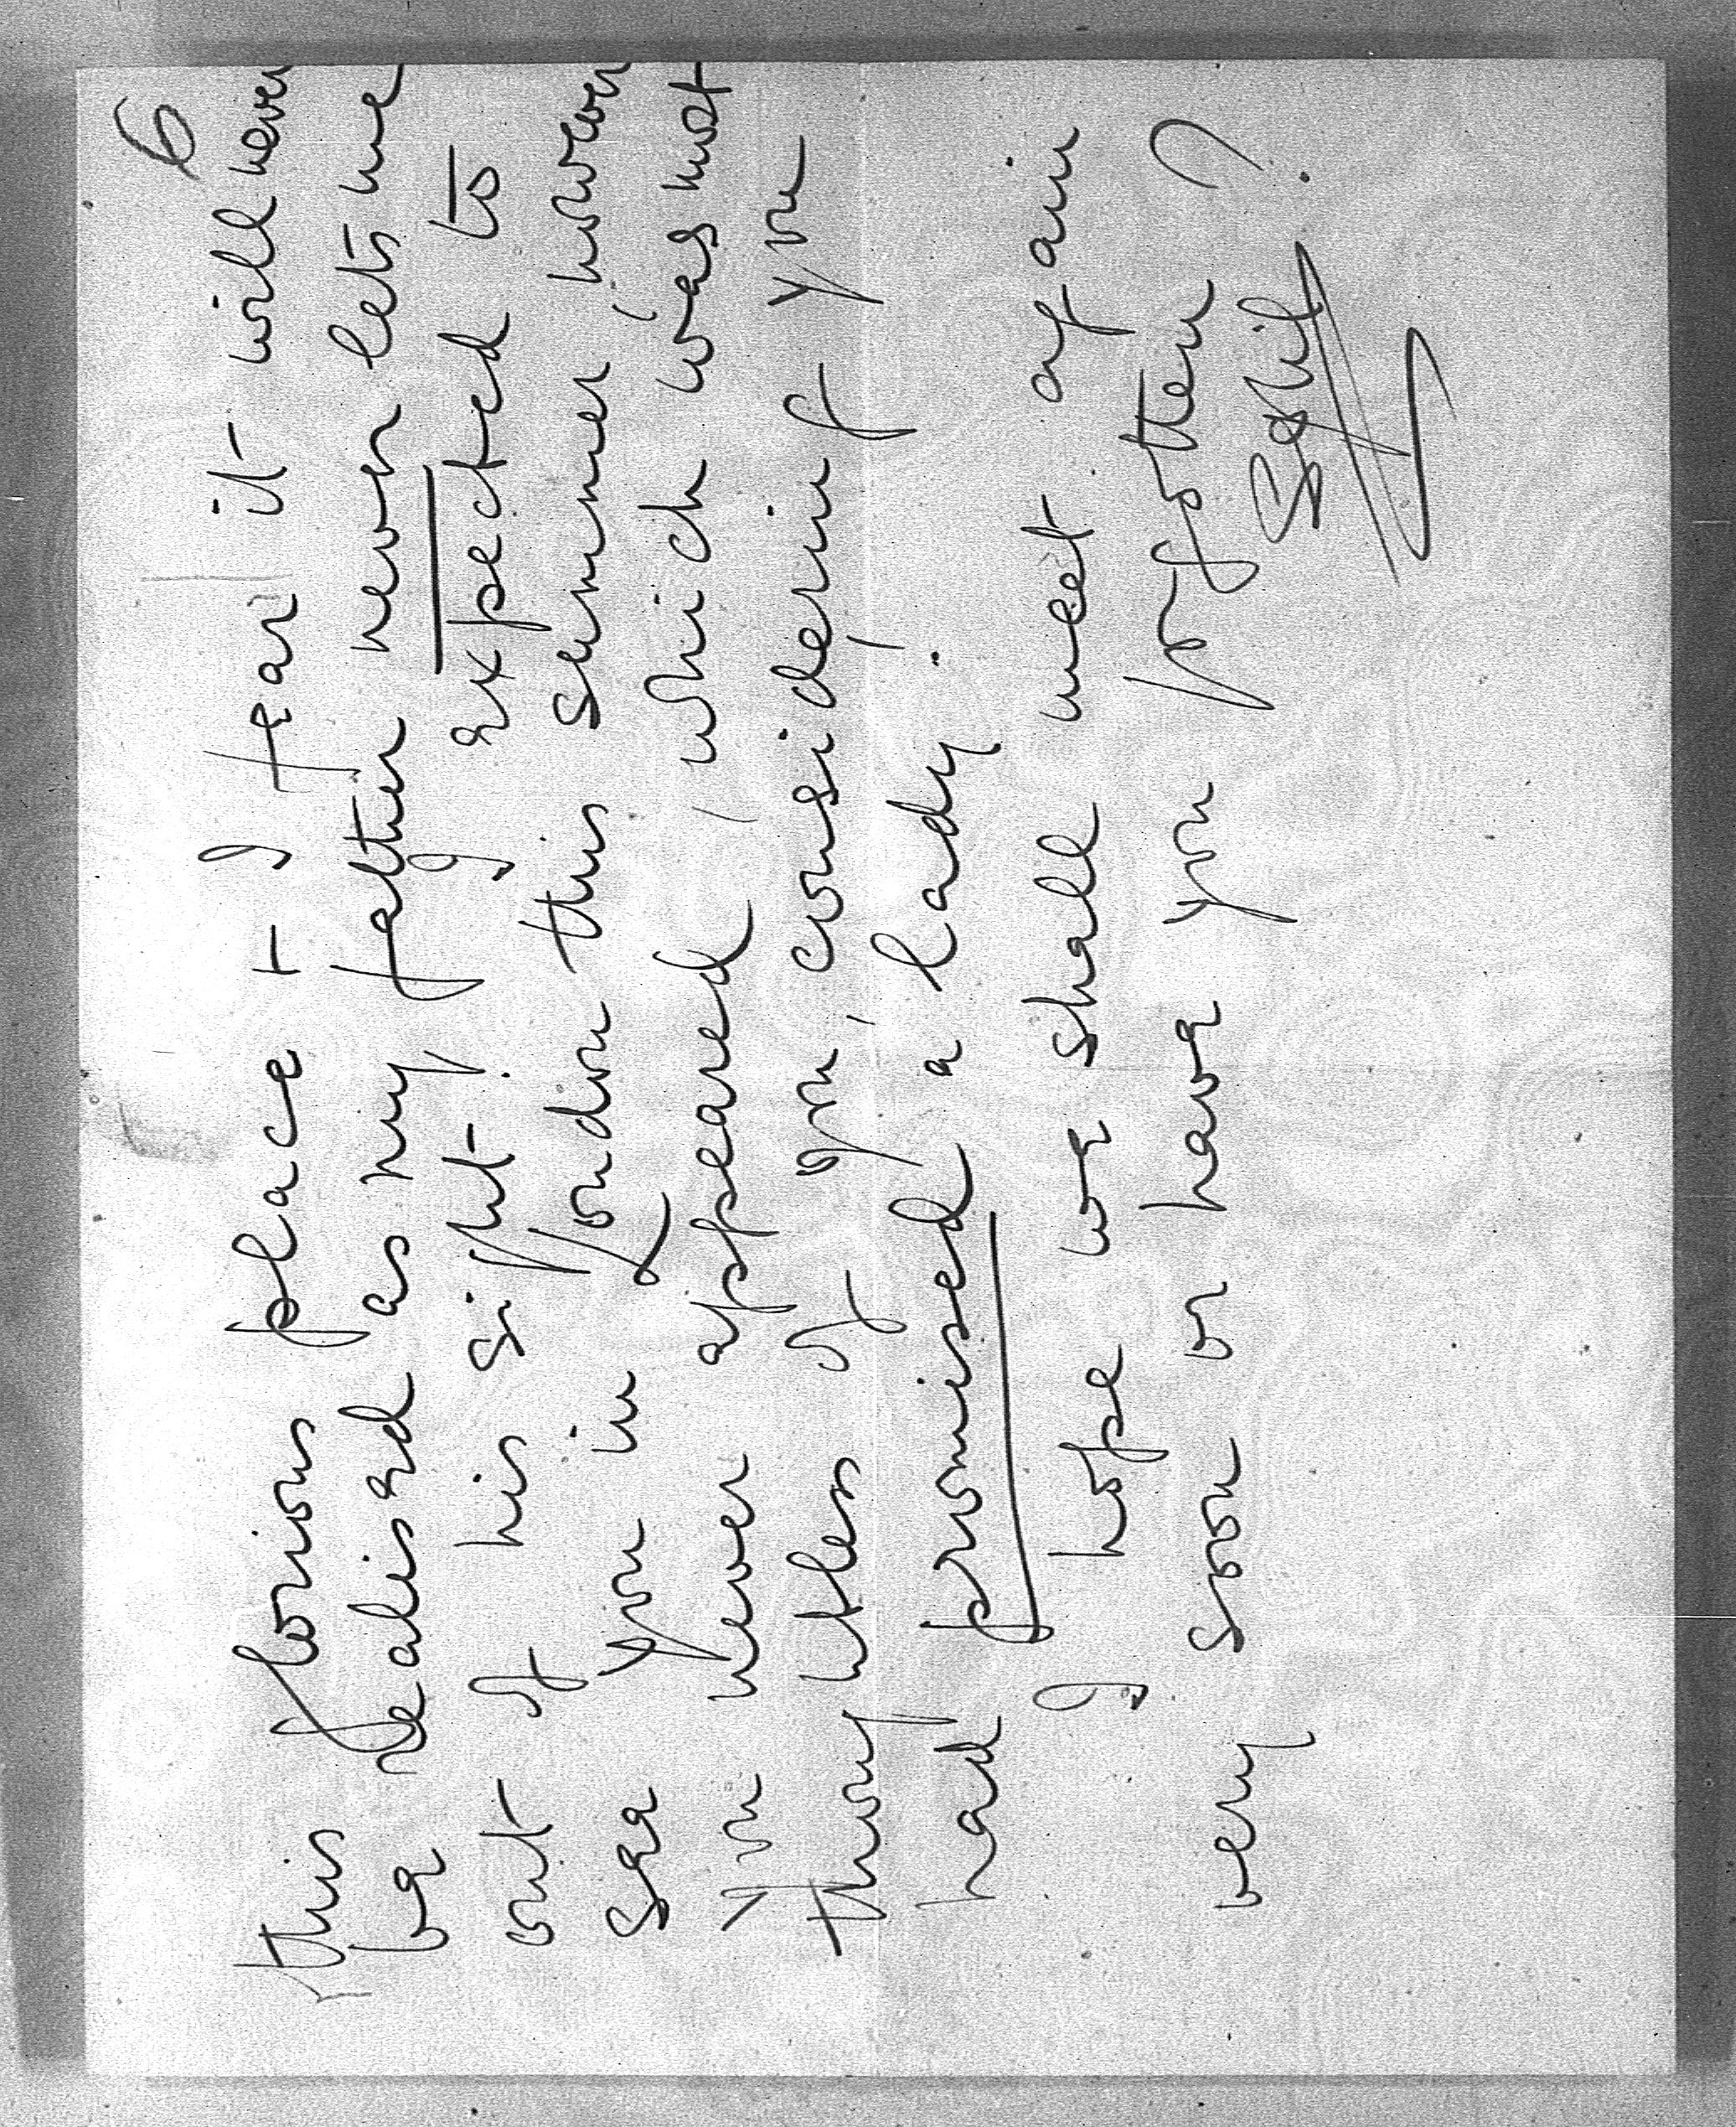 6
this glorious place & I fear it will never
be realised as my father never lets me
out of his sight. I expected to
see you in London this summer however
you never appeared, which was most
thoughtless of you, considering you
had promised a lady.
I hope we shall meet again
very soon or have you forgotten
?